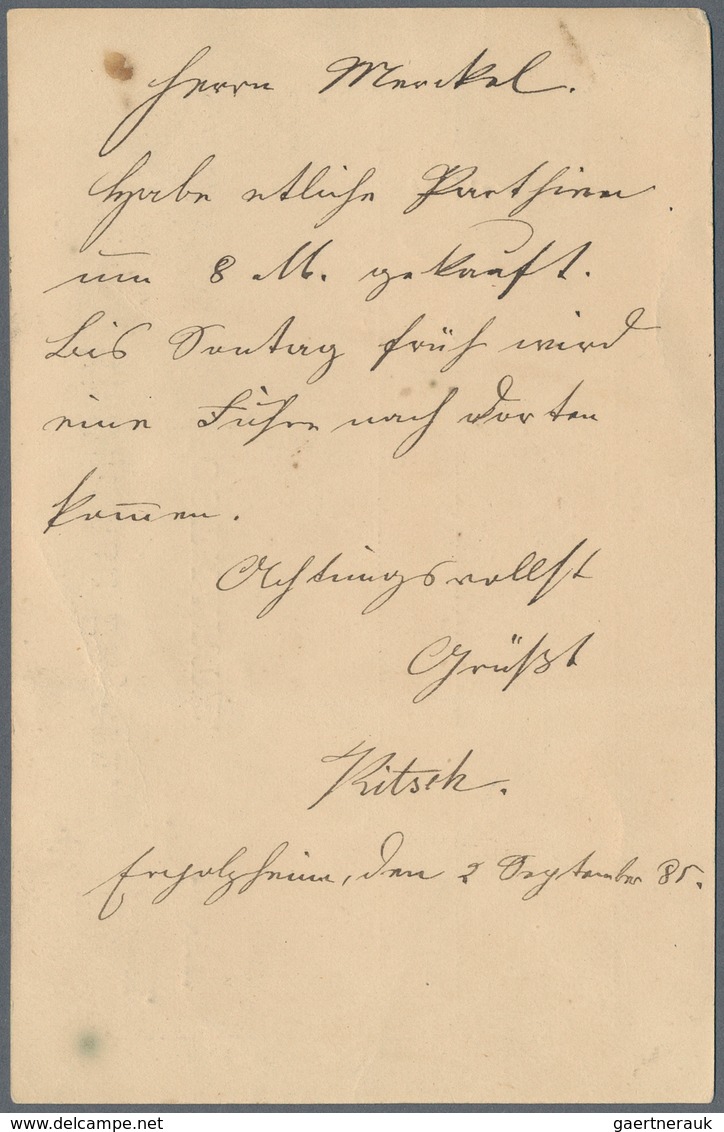 Herrn Merckel.
Habe etliche Parthien
um 8 M. gekauft.
bis Sontag früh wird
eine Fuhre nach dorten
kom̅en.
Achtungsvollst
Grüßt
Kitsch.
Ergolzheim, den 2 September 85.
www.delcampe.net
gaertnerauk